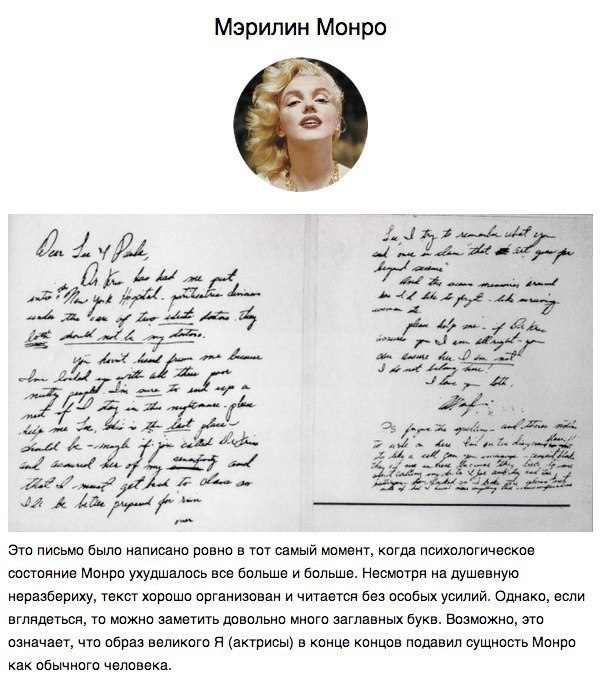 Мэрилин Монро
Dear Lee & Paula,
Dr. Kris has had me put
into the New York Hospital - pschiatric division
under the care of two idiot doctors. they
both should not be my doctors.
You haven't heard from me because
I'm locked up with all these poor
nutty people. I'm sure to end up a
nut if I stay in this nightmare. please
help me Lee, this is the last place
I should be - maybe if you called Dr. Kris
and assured her of my sensitivity and
that I must get back to class so
I'll be better prepared for "rain
over
Lee, I try to remember what you
said once in class "that art goes far
beyond science"
And the scary memories around
me I'd like to forget - like screaming
woman etc.
please help me - if Dr. Kris
assures you I am all right - you
can assure her I am not.
I do not belong here!
I love you both.
Marilyn
P.S. forgive the spelling - and theres nothing
to write on here
Это письмо было написано ровно в тот самый момент, когда психологическое
состояние Монро ухудшалось все больше и больше. Несмотря на душевную
неразбериху, текст хорошо организован и читается без особых усилий. Однако, если
вглядеться, то можно заметить довольно много заглавных букв. Возможно, это
означает, что образ великого Я (актрисы) в конце концов подавил сущность Монро
как обычного человека.